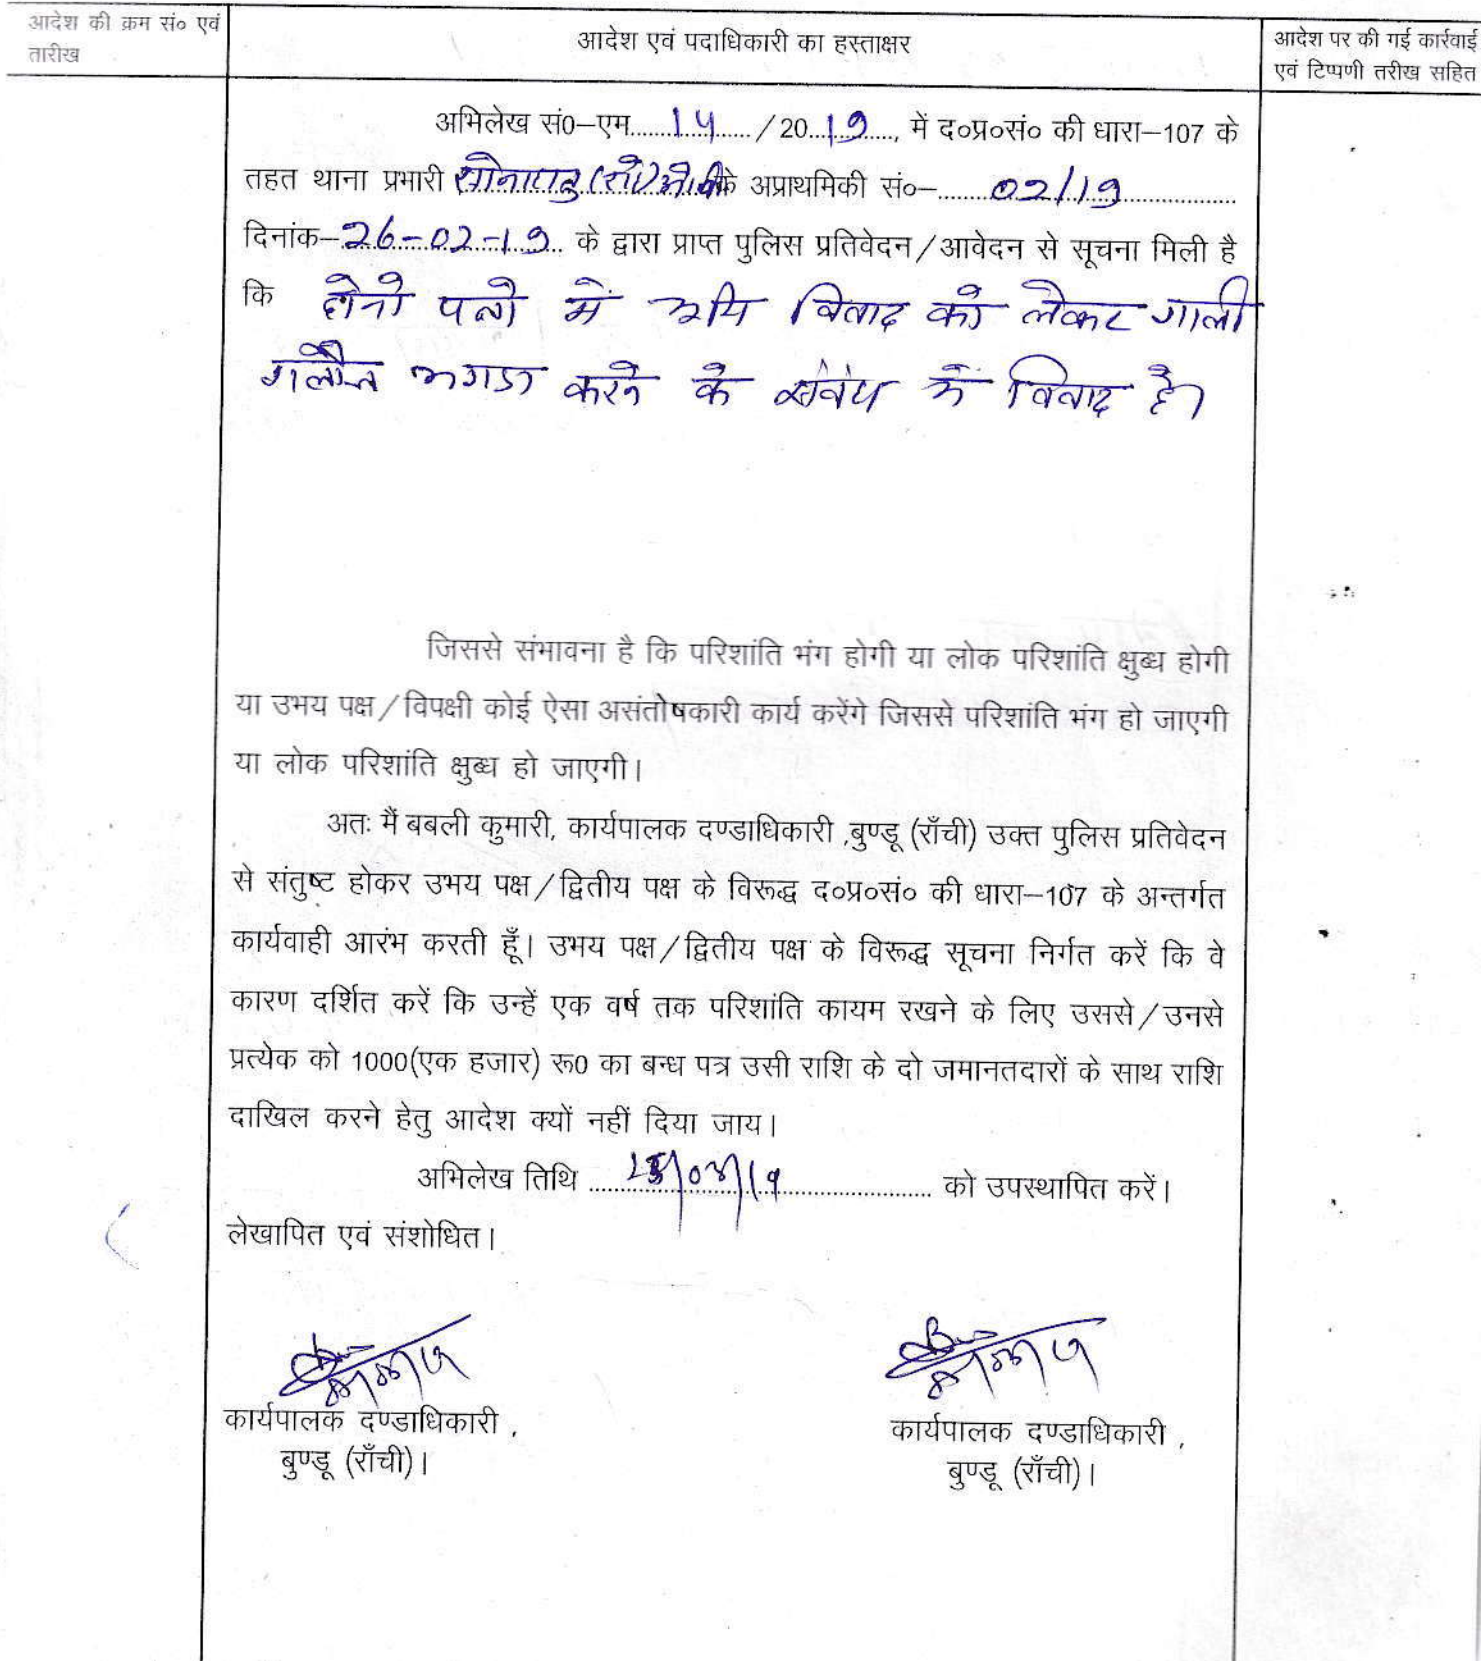 आदेश की क्रम सं० एवं
तारीख
आदेश एवं पदाधिकारी का हस्ताक्षर
आदेश पर की गई कार्रवाई
एवं टिप्पणी तरीख सहित
अभिलेख सं0–एम........14....../20...19......, में द०प्र०सं० की धारा–107 के
तहत थाना प्रभारी के अप्राथमिकी सं०–........02/19...............
दिनांक–26-02-19.. के द्वारा प्राप्त पुलिस प्रतिवेदन/आवेदन से सूचना मिली है
कि दोनो पक्षो में भूमि विवाद को लेकर गाली
गलौज झगडा करने के संबंध में विवाद है।
जिससे संभावना है कि परिशांति भंग होगी या लोक परिशांति क्षुब्ध होगी
या उभय पक्ष/विपक्षी कोई ऐसा असंतोषकारी कार्य करेंगे जिससे परिशांति भंग हो जाएगी
या लोक परिशांति क्षुब्ध हो जाएगी।
अतः मैं बबली कुमारी, कार्यपालक दण्डाधिकारी ,बुण्डू (राँची) उक्त पुलिस प्रतिवेदन
से संतुष्ट होकर उभय पक्ष/द्वितीय पक्ष के विरूद्ध द०प्र०सं० की धारा–107 के अन्तर्गत
कार्यवाही आरंभ करती हूँ। उभय पक्ष/द्वितीय पक्ष के विरूद्ध सूचना निर्गत करें कि वे
कारण दर्शित करें कि उन्हें एक वर्ष तक परिशांति कायम रखने के लिए उससे/उनसे
प्रत्येक को 1000(एक हजार) रू0 का बन्ध पत्र उसी राशि के दो जमानतदारों के साथ राशि
दाखिल करने हेतु आदेश क्यों नहीं दिया जाय।
अभिलेख तिथि .................... को उपस्थापित करें।
लेखापित एवं संशोधित।
कार्यपालक दण्डाधिकारी ,
बुण्डू (राँची)।
कार्यपालक दण्डाधिकारी ,
बुण्डू (राँची)।